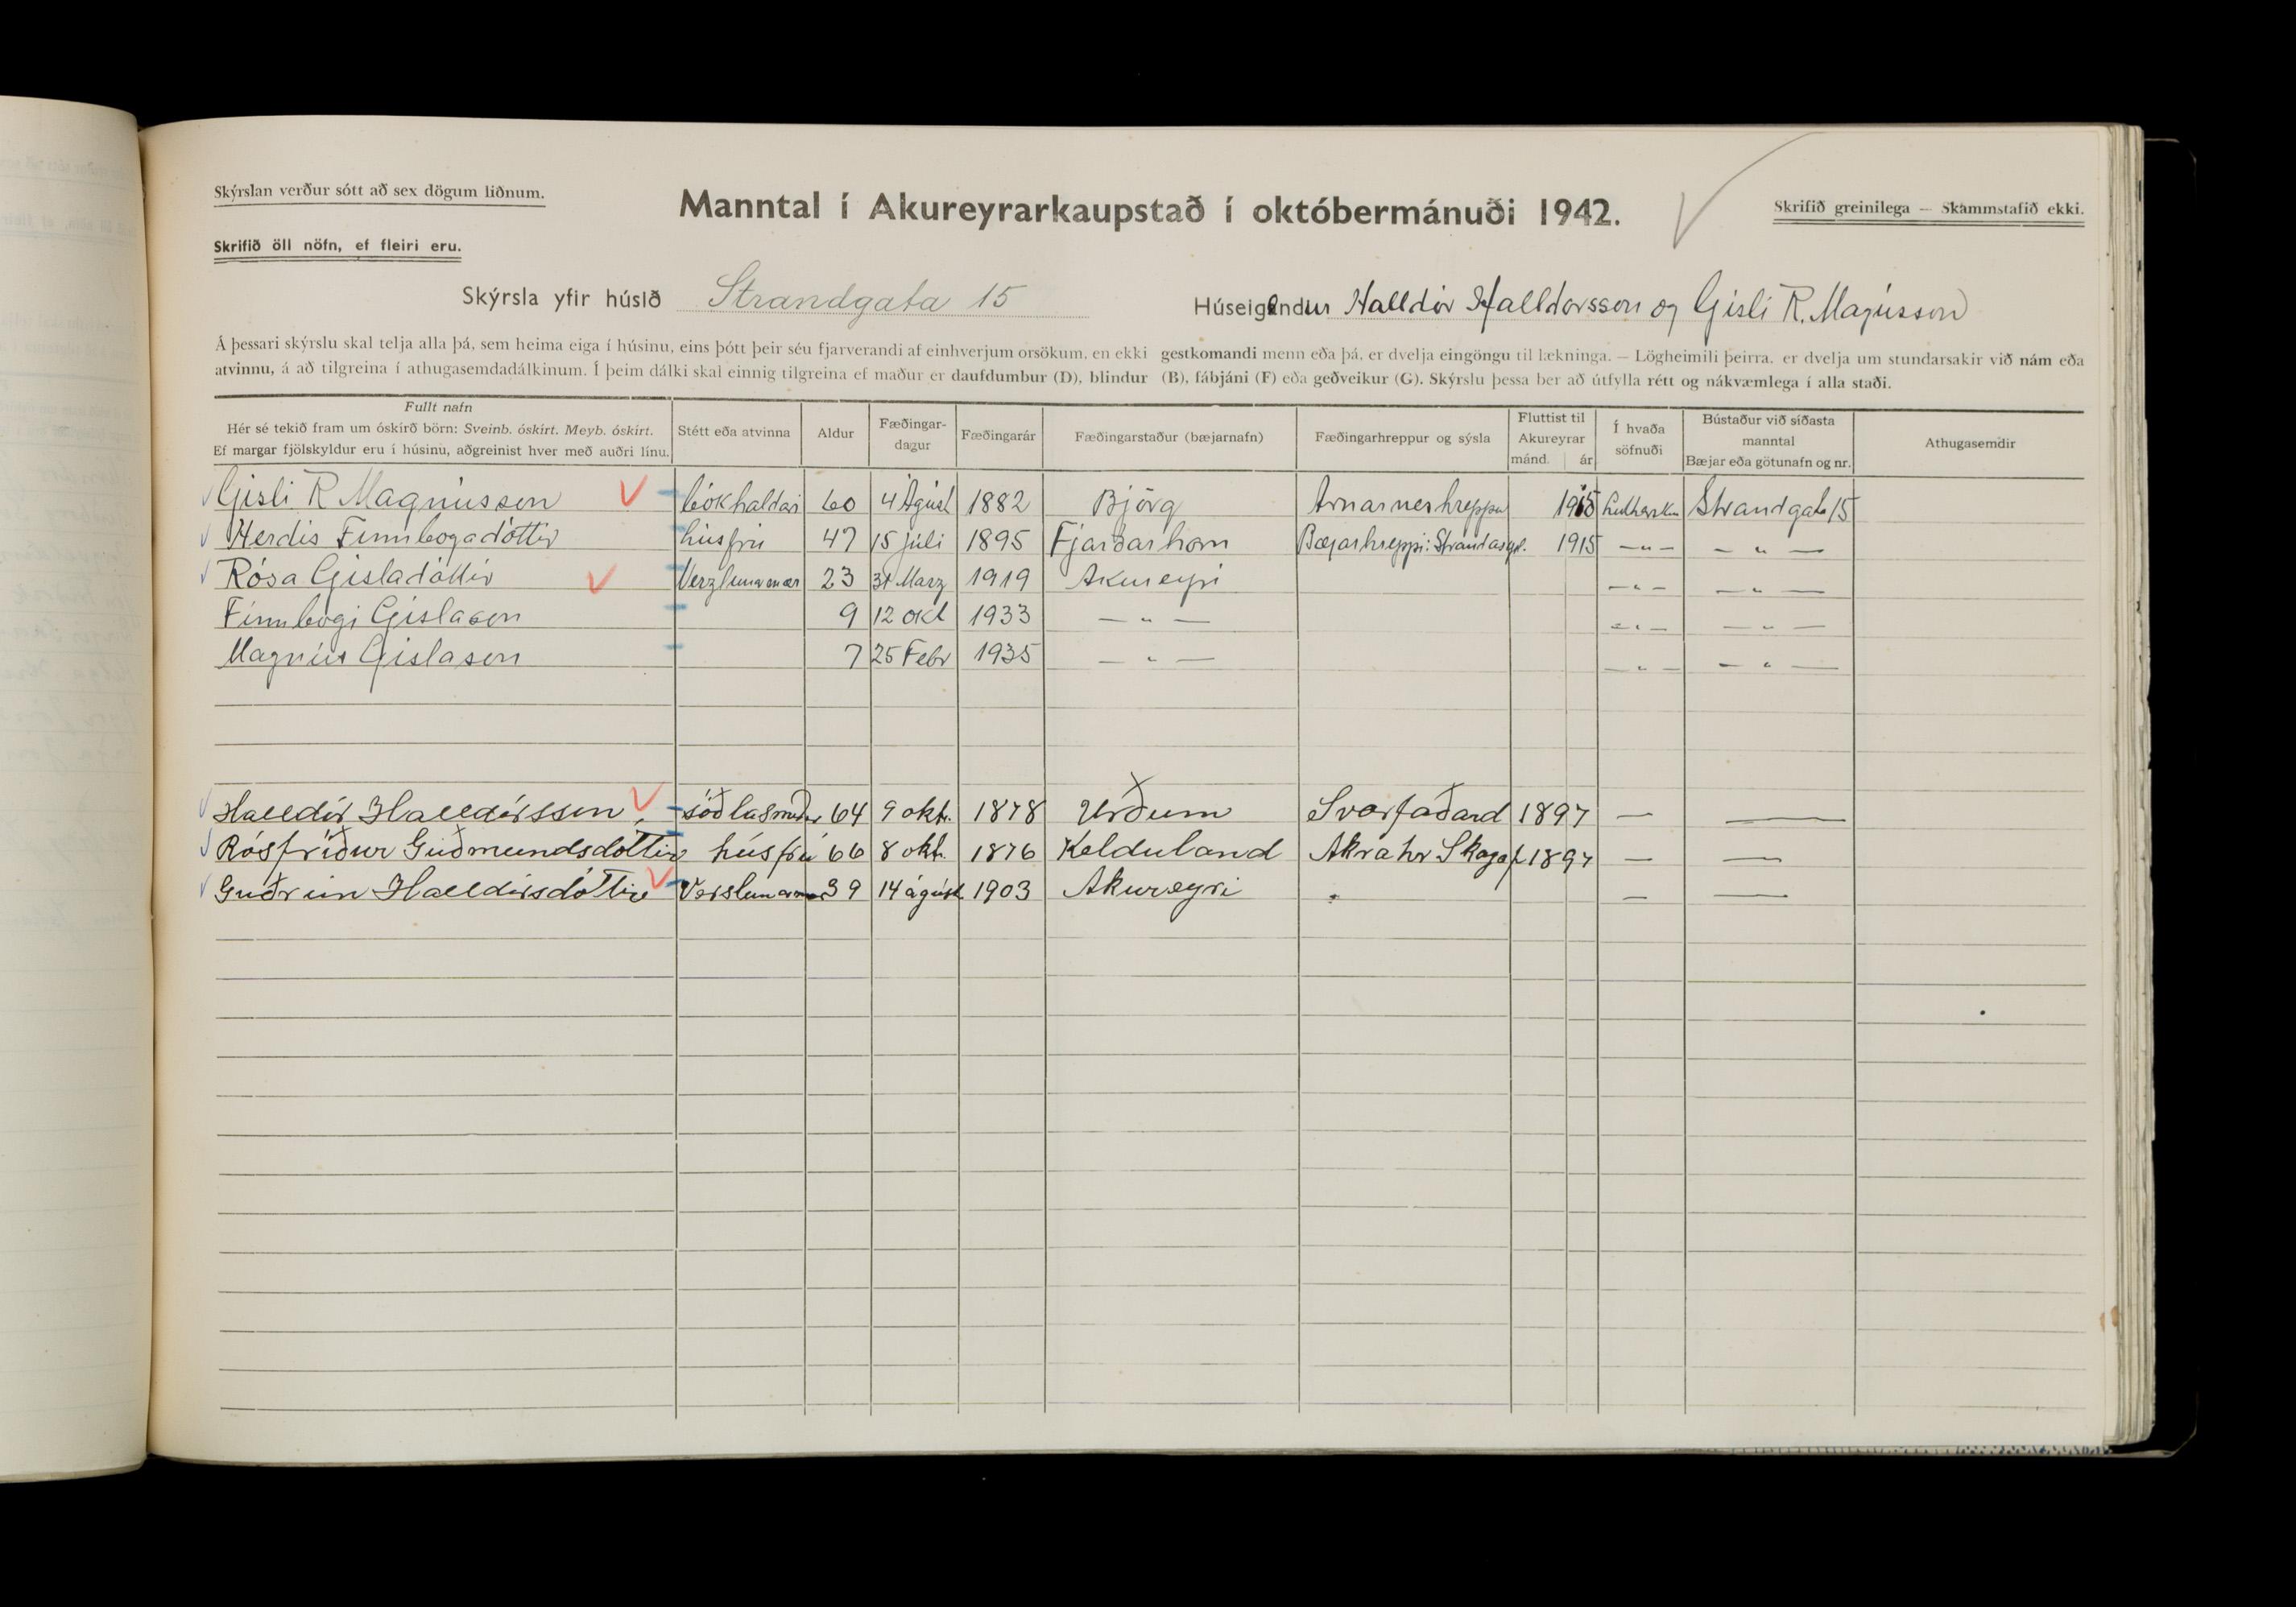 Skýrslan verður sótt að sex dögum liðnum.
Manntal í Akureyrarkaupstað í októbermánuði 1942.
Skrifið greinilega — Skammstafið ekki.
Skrifið öll nöfn, ef fleiri eru.
Skýrsla yfir húsið Strandgata 15
Húseigendur Halldór Halldorsson og Gísli R. Magússon
Á þessari skýrslu skal telja alla þá, sem heima eiga í húsinu, eins þótt þeir séu fjarverandi af einhverjum orsökum, en ekki gestkomandi menn eða þá, er dvelja eingöngu til lækninga. — Lögheimili þeirra, er dvelja um stundarsakir við nám eða
atvinnu, á að tilgreina í athugasemdadálkinum. Í þeim dálki skal einnig tilgreina ef maður er daufdumbur (D), blindur (B), fábjáni (F) eða geðveikur (G). Skýrslu þessa ber að útfylla rétt og nákvæmlega í alla staði.
Fullt nafn
Hér sé tekið fram um óskírð börn: Sveinb. óskírt. Meyb. óskírt.
Ef margar fjölskyldur eru í húsinu, aðgreinist hver með auðri línu.
Stétt eða atvinna
Aldur
Fæðingar-
dagur
Fæðingarár
Fæðingarstaður (bæjarnafn)
Fæðingarhreppur og sýsla
Fluttist til
Akureyrar
mánd. ár
Í hvaða
söfnuði
Bústaður við síðasta
manntal
Bæjar eða götunafn og nr.
Athugasemdir
Gísli R Magnússon bókhaldari 60 4 Ágúst 1882 Björg Arnarneshreppu Strandgata 15
Herdís Finnbogadóttir húsfrú 47 15 júlí 1895 Fjarðarhorn Bæjarhreppi: Strandasýsl. 1915 — „ — — „ —
Rósa Gísladóttir 23 31 Marz 1919 Akureyri — „ — — „ —
Finnbogi Gíslason 9 12 okt 1933 — „ — — „ — — „ —
Magnús Gíslason 7 25 Febr 1935 — „ — — „ — — „ —
Halldór Halldórsson, söðlasmiður 64 9 okt. 1878 Urðum Svarfaðard 1897 — —
Rósfríður Guðmundsdóttir húsfrú 66 8 okt. 1876 Kelduland Akrahr Skagaf 1897 — —
Guðrún Halldórsdóttir 39 14 ágúst 1903 Akureyri „ — —